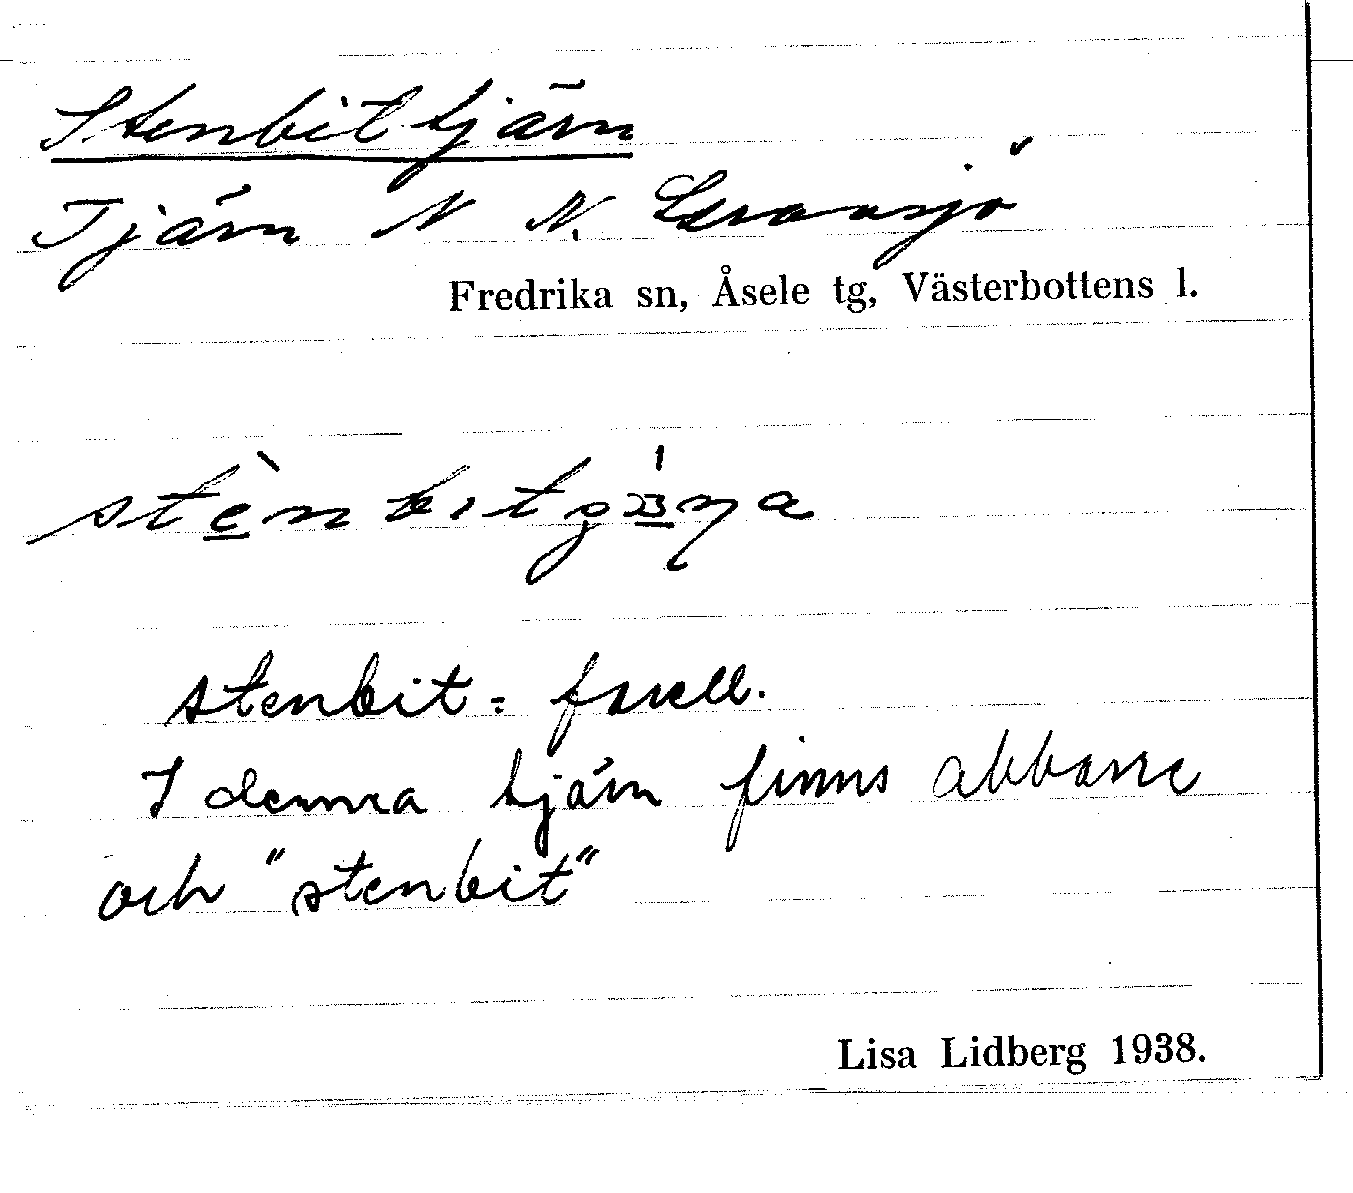 Stenbittjärn
Tjärn N N.
Fredrika sn, Åsele tg, Västerbottens l.
stenbit = forell.
I denna tjärn finns abborre
och "stenbit"
Lisa Lidberg 1938.